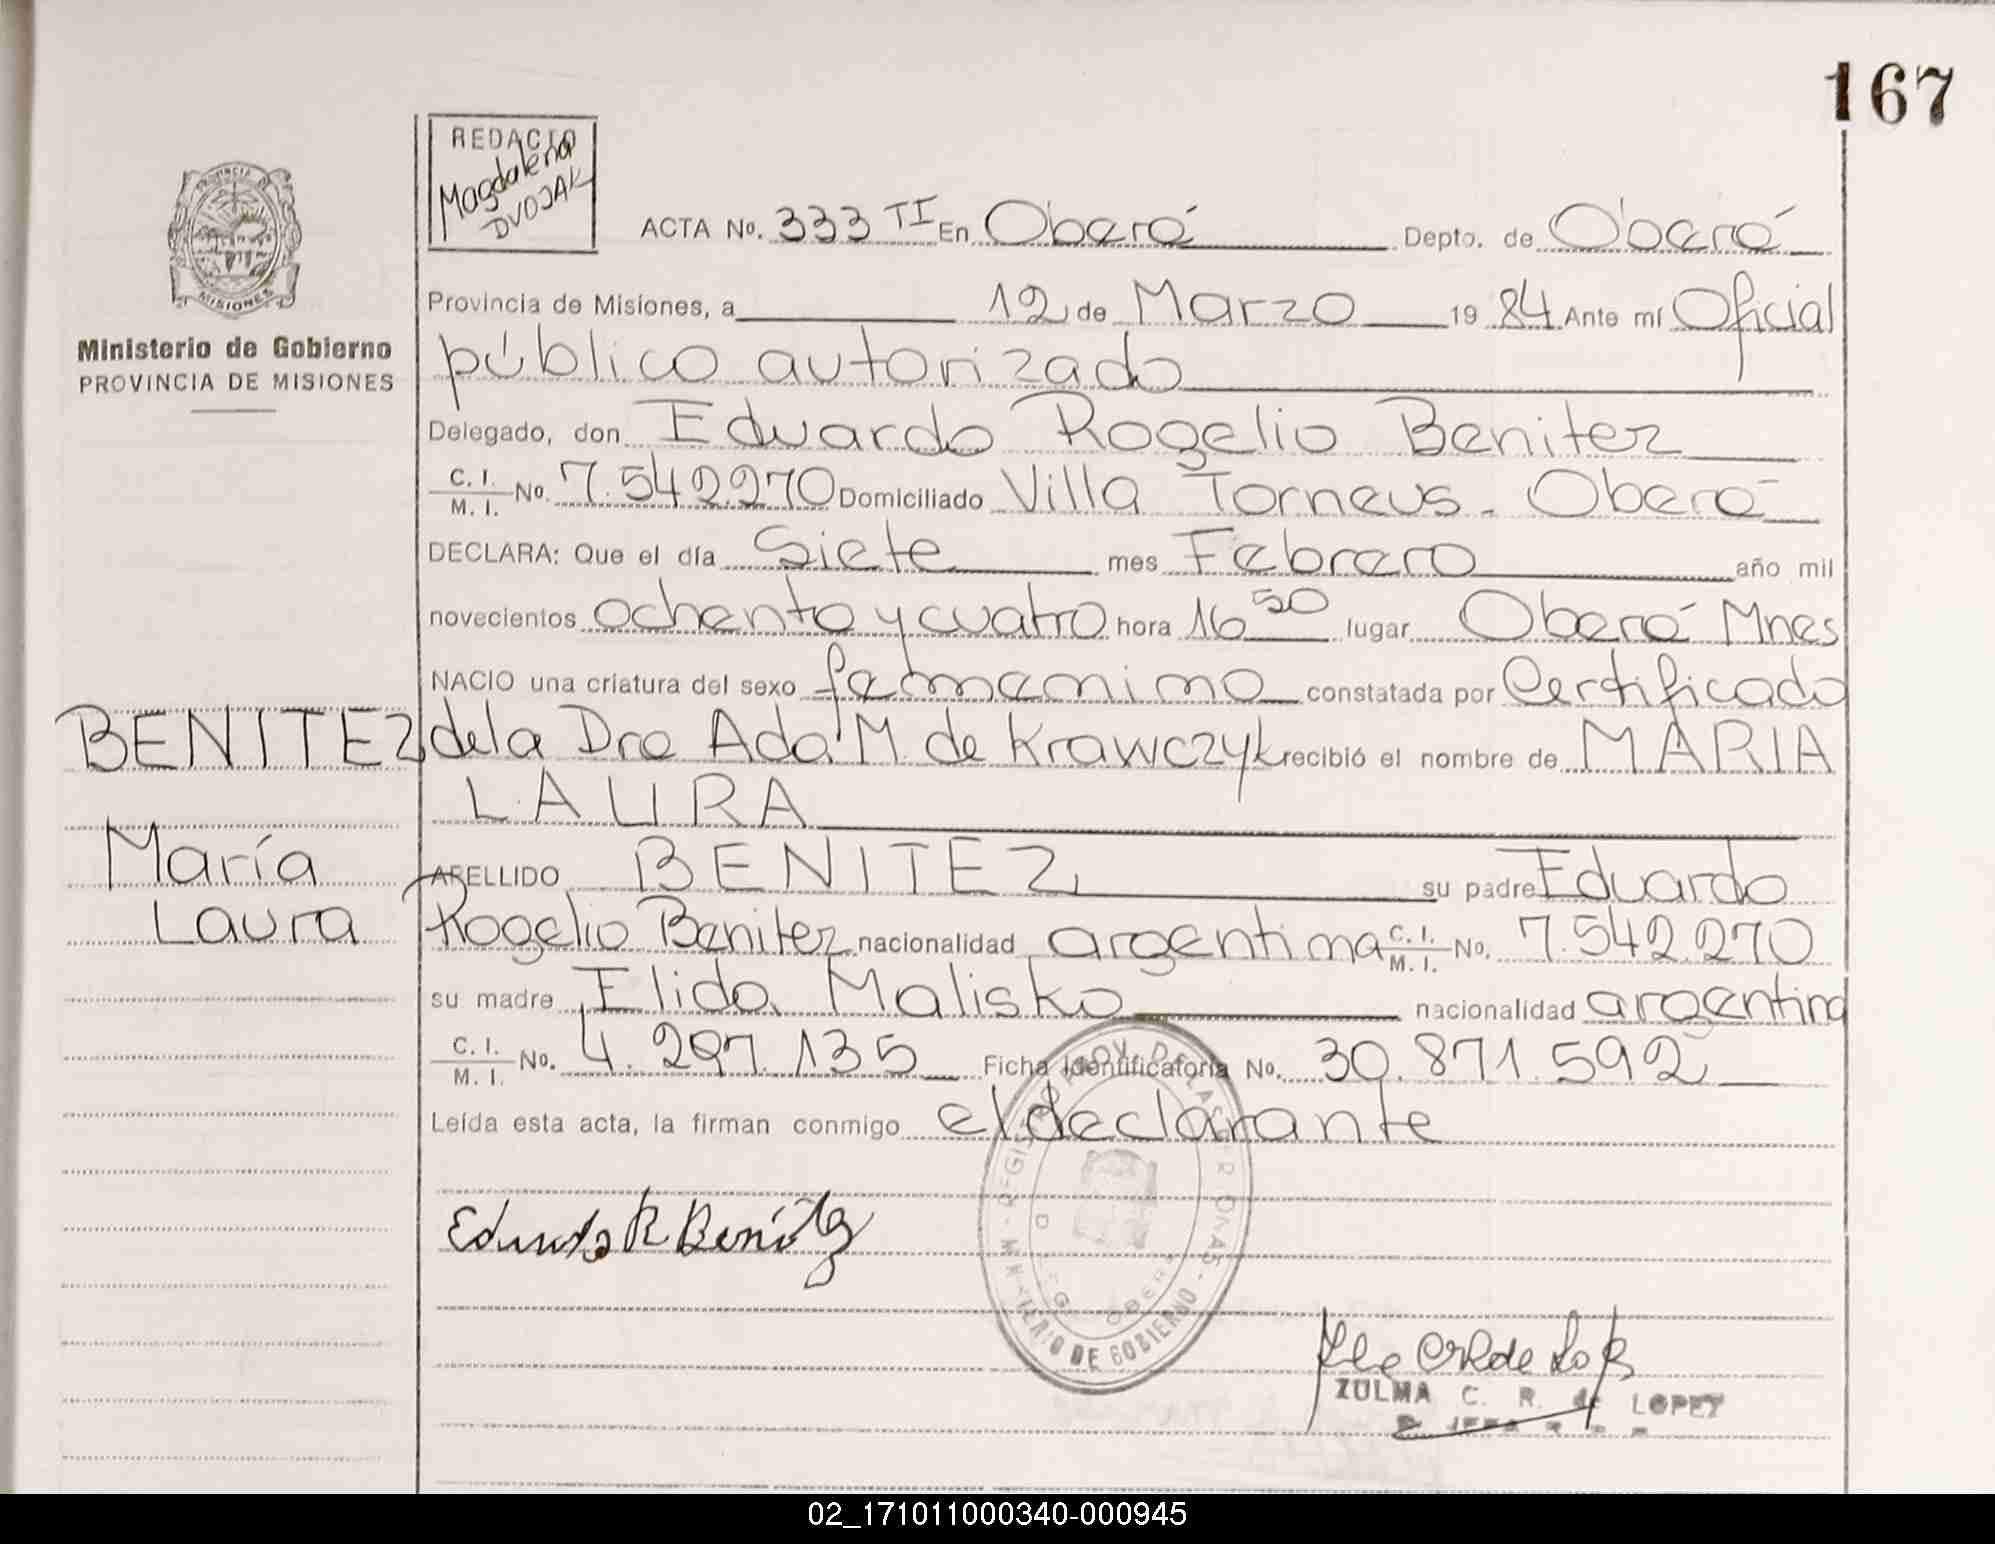 167
REDACTO
Magdalena
DVOJAK
PROVINCIA DE
MISIONES
Ministerio de Gobierno
PROVINCIA DE MISIONES
ACTA No. 333 TI En Oberá Depto. de Oberá
Provincia de Misiones, a 12 de Marzo 1984 Ante mí Oficial
público autorizado
Delegado, don Eduardo Rogelio Benitez
C. I. / M. I. No. 7.542.270 Domiciliado Villa Torneus - Oberá
DECLARA: Que el día Siete mes Febrero año mil
novecientos ochenta y cuatro hora 16 50 lugar Oberá Mnes
NACIO una criatura del sexo femenino constatada por Certificado
de la Dra Ada M. de Krawczyk recibió el nombre de MARIA
LAURA
APELLIDO BENITEZ su padre Eduardo
Rogelio Benitez nacionalidad argentina C. I. / M. I. No. 7.542.270
su madre Elida Malisko nacionalidad argentina
C. I. / M. I. No. 4.297.135 Ficha Identificatoria No. 30.871.592
Leída esta acta, la firman conmigo el declarante
BENITEZ
María
Laura
Eduardo R Benítez
MINISTERIO DE GOBIERNO
ZULMA C. R. de LOPEZ
02_171011000340-000945